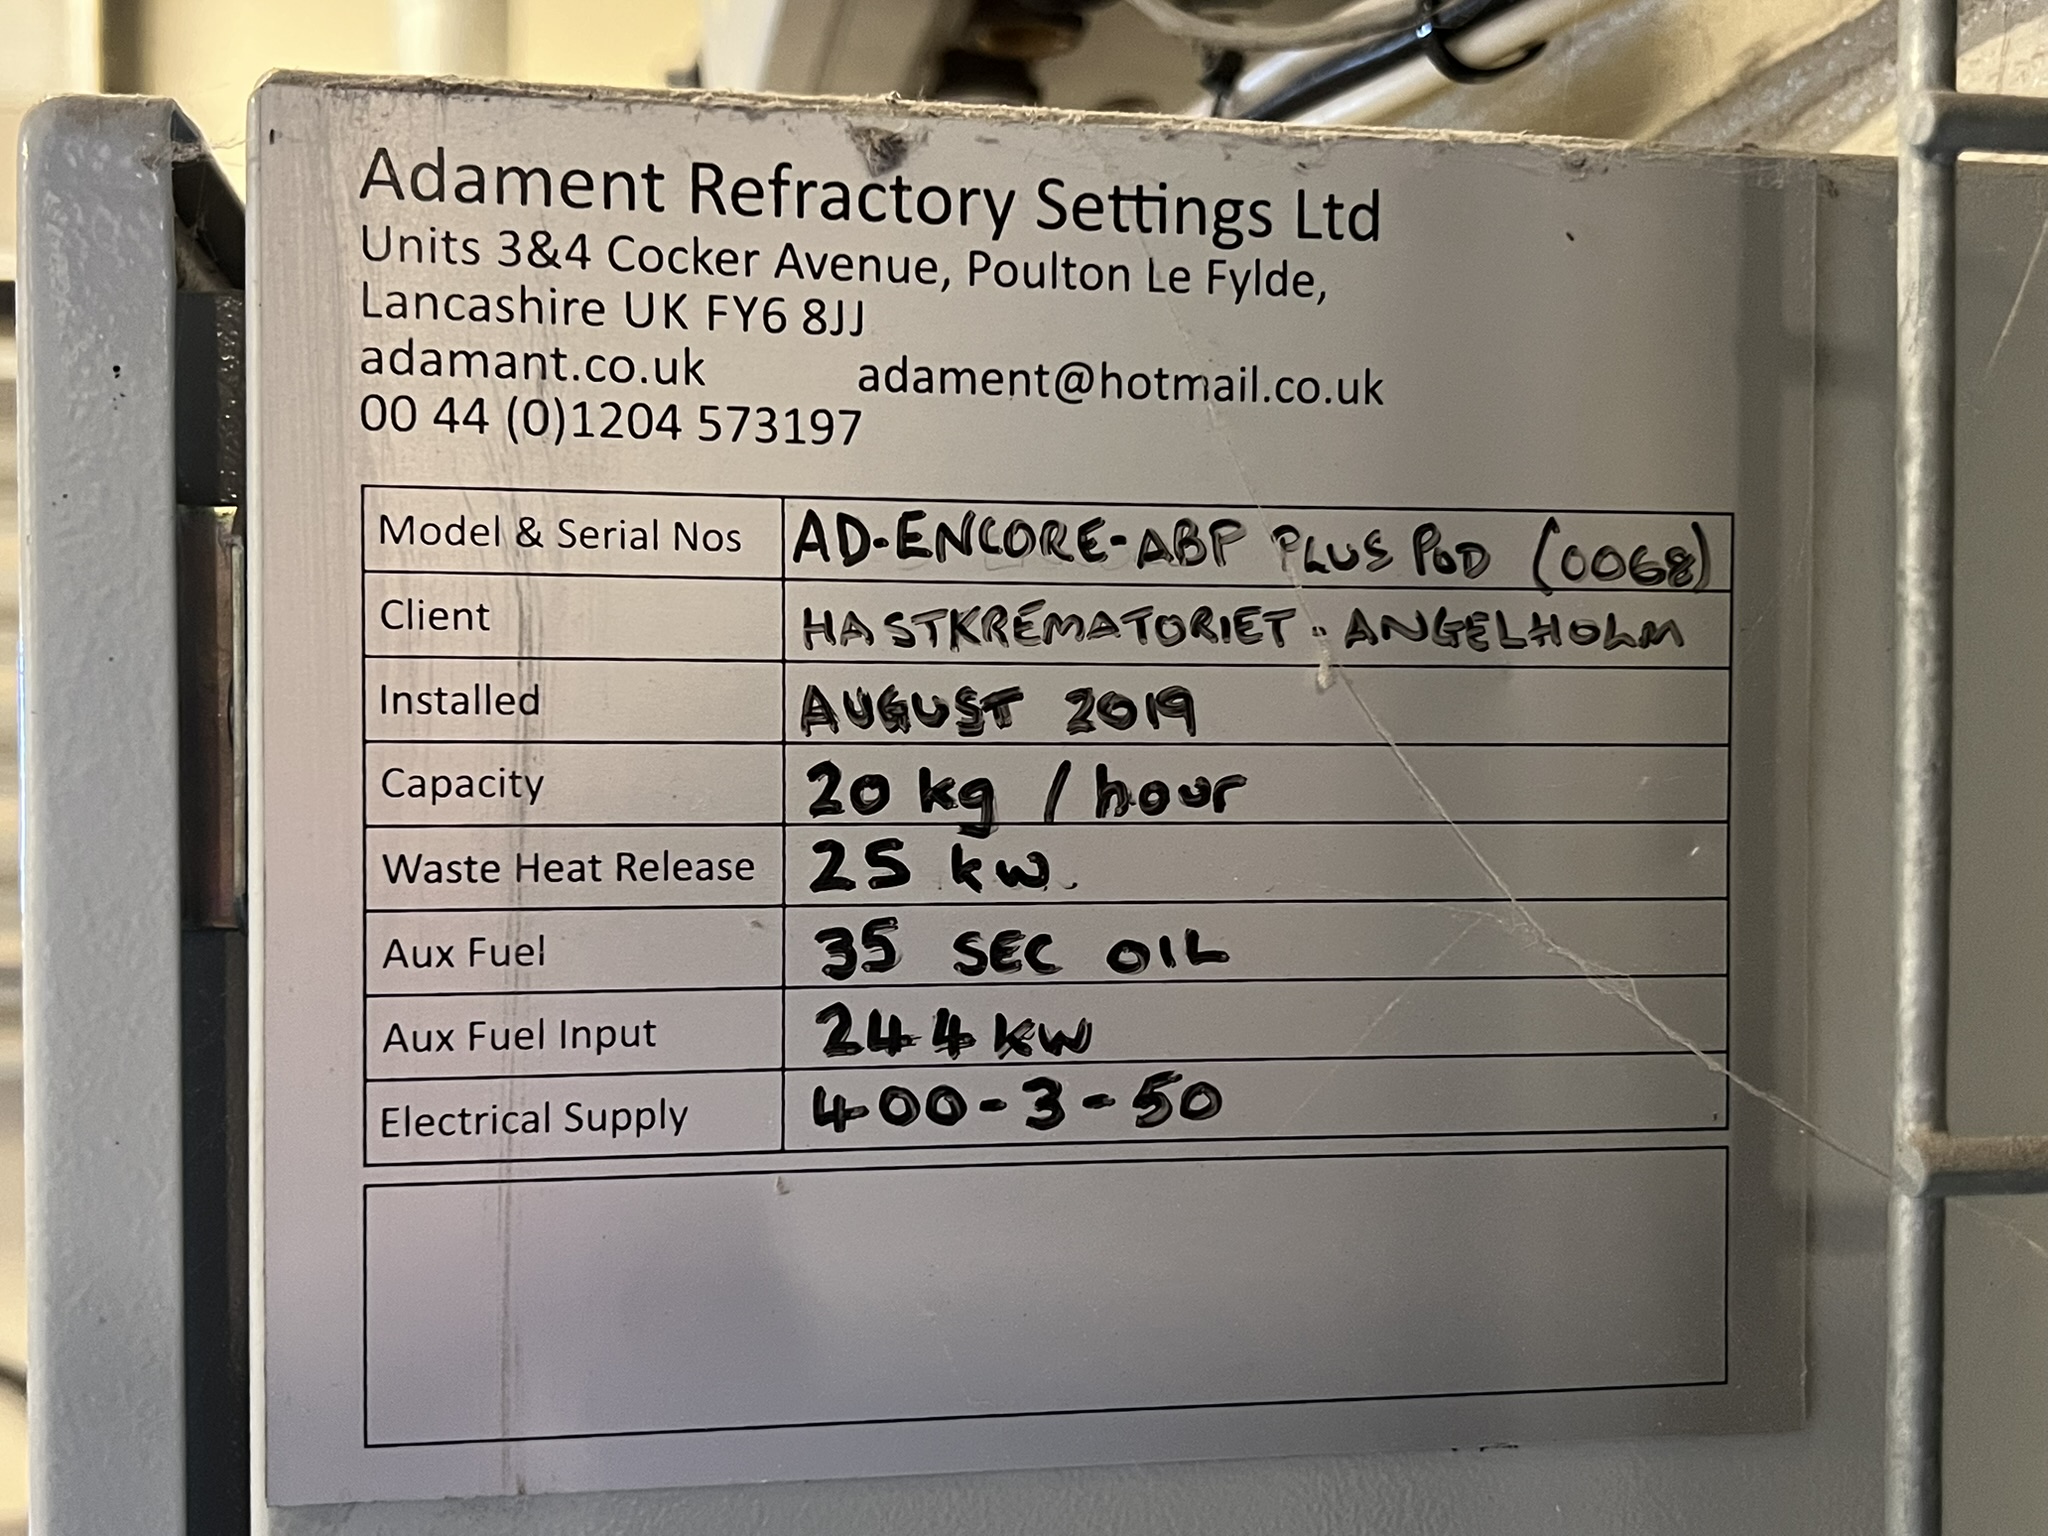 Adament Refractory Settings Ltd
Units 3&4 Cocker Avenue, Poulton Le Fylde,
Lancashire UK FY6 8JJ
adamant.co.uk adament@hotmail.co.uk
00 44 (0)1204 573197
Model & Serial Nos AD-ENCORE-ABP PLUS POD (0068)
Client HASTKREMATORIET - ANGELHOLM
Installed AUGUST 2019
Capacity 20 kg / hour
Waste Heat Release 25 kw.
Aux Fuel 35 SEC OIL
Aux Fuel Input 244 kw
Electrical Supply 400-3-50